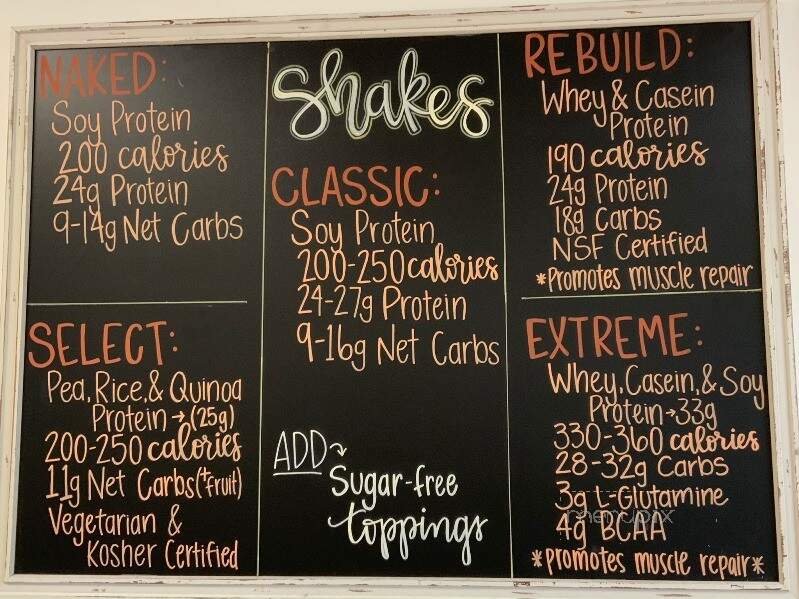 Shakes
NAKED:
Soy Protein
200 calories
24g Protein
9-14g Net Carbs
SELECT:
Pea, Rice, & Quinoa
Protein → (25g)
200-250 calories
11g Net Carbs (+fruit)
Vegetarian &
Kosher Certified
CLASSIC:
Soy Protein
200-250 calories
24-27g Protein
9-16g Net Carbs
ADD
Sugar-free
toppings
REBUILD:
Whey & Casein
Protein
190 calories
24g Protein
18g Carbs
NSF Certified
*Promotes muscle repair
EXTREME:
Whey, Casein, & Soy
Protein → 33g
330-360 calories
28-32g Carbs
3g L-Glutamine
menupix
4g BCAA
*promotes muscle repair*